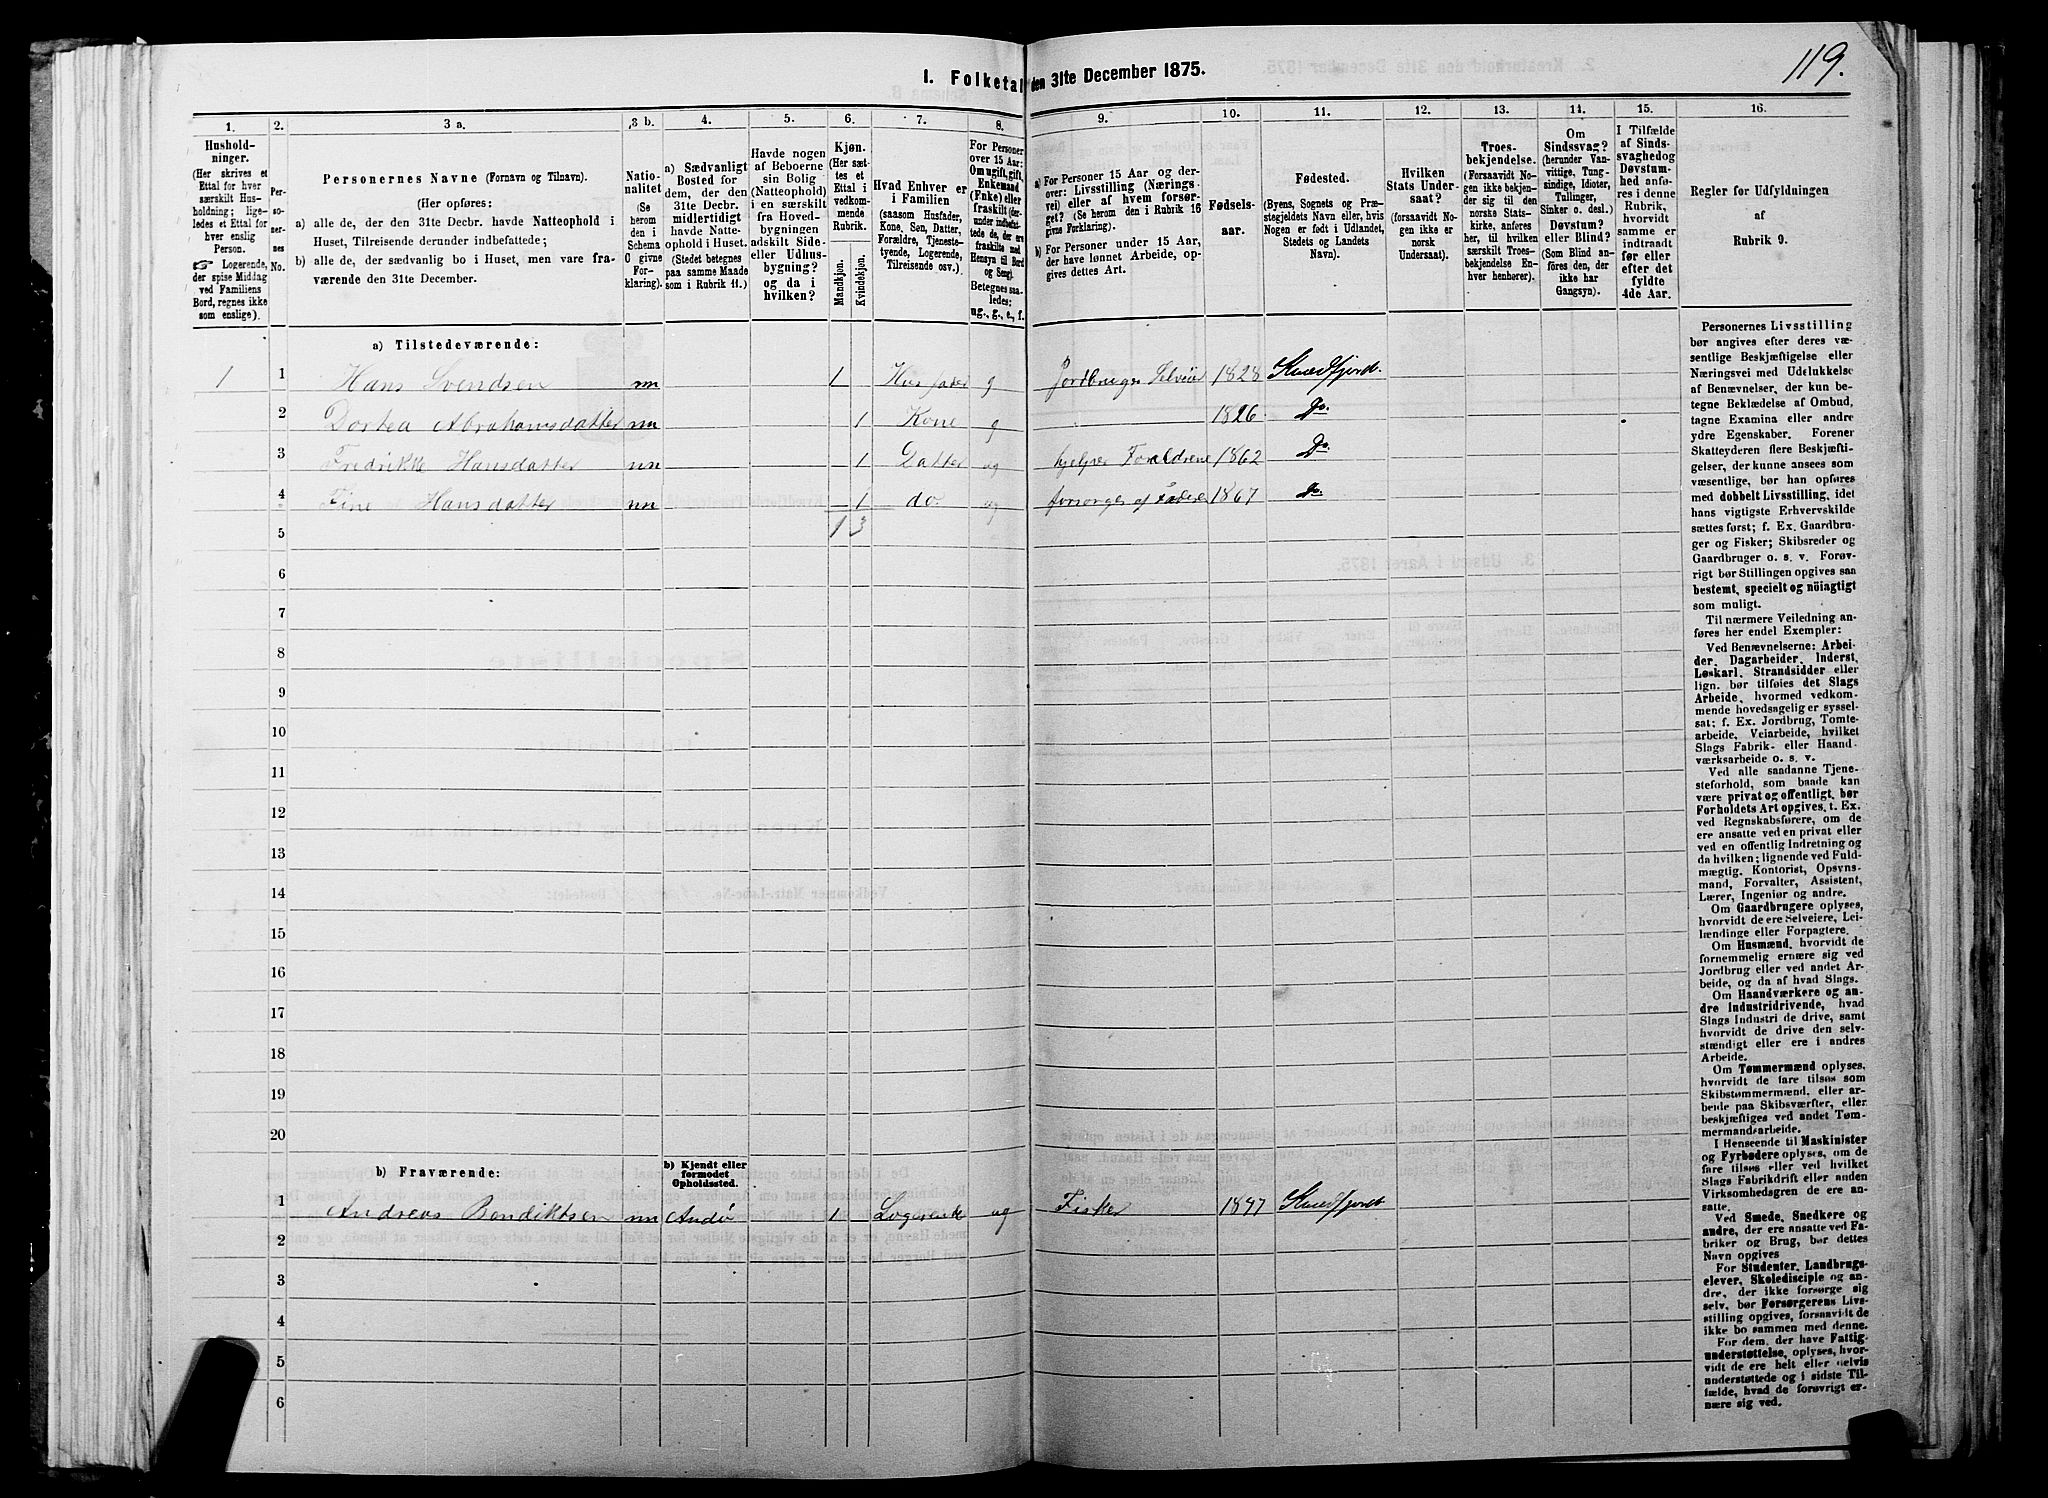 119.
I. Folketal den 31te December 1875.
1. 2. 3 a. 3 b. 4. 5. 6. 7. 8. 9. 10. 11. 12. 13. 14. 15. 16.
Husholdninger.
(Her skrives et
Ettal for hver
særskilt Husholdning;
ligeledes et Ettal for
hver enslig
Person.
☞ Logerende,
der spise Middag
ved Familiens
Bord, regnes ikke
som enslige).
Personernes No.
Personernes Navne (Fornavn og Tilnavn).
(Her opføres:
a) alle de, der den 31te Decbr. havde Natteophold i
Huset, Tilreisende derunder indbefattede;
b) alle de, der sædvanlig bo i Huset, men vare fraværende
den 31te December.
Nationalitet
(Se
herom
den i
Schema
O givne
Forklaring).
a) Sædvanligt
Bosted for
dem, der den
31te Decbr.
midlertidigt
havde Natteophold
i Huset.
(Stedet betegnes
paa samme Maade
som i Rubrik 11.)
Havde nogen
af Beboerne
sin Bolig
(Natteophold)
i en særskilt
fra Hovedbygningen
adskilt Side-
eller Udhusbygning?
og da i
hvilken?
Kjøn.
(Her sættes
et
Ettal i
vedkommende
Rubrik.
Mandkjøn.
Kvindekjøn.
Hvad Enhver er
i Familien
(saasom Husfader,
Kone, Søn, Datter,
Forældre, Tjenestetyende,
Logerende,
Tilreisende osv.)
For Personer
over 15 Aar:
Om ugift, gift,
Enkemand
(Enke) eller
fraskilt (derunder
indbefattede
de, der ere
fraskilte med
Hensyn til Bord
og Seng).
Betegnes saaledes:
ug., g., e., f.
a) For Personer 15 Aar og derover:
Livsstilling (Næringsvei)
eller af hvem forsørget?
(Se herom den i Rubrik 16
givne Forklaring).
b) For Personer under 15 Aar,
der have lønnet Arbeide, opgives
dettes Art.
Fødselsaar.
Fødested.
(Byens, Sognets og Præstegjeldets
Navn eller, hvis
Nogen er født i Udlandet,
Stedets og Landets
Navn).
Hvilken
Stats Undersaat?
(forsaavidt Nogen
ikke er
norsk
Undersaat).
Troesbekjendelse.
(Forsaavidt Nogen
ikke bekjender
sig til den
norske Statskirke,
anføres
her, til hvilken
særskilt Troesbekjendelse
Enhver
henhører).
Om
Sindssvag?
(herunder Vanvittige,
Tungsindige,
Idioter,
Tullinger,
Sinker o. desl.)
Døvstum?
eller Blind?
(Som Blind anføres
den, der
ikke har
Gangsyn).
I Tilfælde
af Sindssvaghed
og
Døvstumhed
anføres
i denne
Rubrik,
hvorvidt
samme er
indtraadt
før eller
efter det
fyldte
4de Aar.
Regler for Udfyldningen
af
Rubrik 9.
a) Tilstedeværende:
1 1 Hans Svendsen nn 1 Husfader g Jordbruger Selveier 1828 Kvædfjord.
2 Dortea Abrahamsdatter nn 1 Kone g 1826 Do.
3 Fredrikke Hansdatter nn 1 Datter ug hjelper Forældrene 1862 Do.
4 Fine Hansdatter nn 1 do ug forsørges af Faderen 1867 Do.
5 1 3
6
7
8
9
10
11
12
13
14
15
16
17
18
19
20
b) Fraværende: b) Kjendt eller
formodet
Opholdssted.
1 Andreas Bendiktsen nn Andø 1 Logerende ug Fisker 1847 Kvædfjord
2
3
4
5
6
Personernes Livsstilling
bør angives efter deres væsentlige
Beskjæftigelse eller
Næringsvei med Udelukkelse
af Benævnelser, der kun betegne
Beklædelse af Ombud,
tagne Examina eller andre
ydre Egenskaber. Forener
Skatteyderen flere Beskjæftigelser,
der kunne ansees som
væsentlige, bør han opføres
med dobbelt Livsstilling, idet
hans vigtigste Erhvervskilde
sættes først; f. Ex. Gaardbruger
og Fisker; Skibsreder og
Gaardbruger o. s. v. Forøvrigt
bør Stillingen opgives saa
bestemt, specielt og nöiagtigt
som muligt.
Til nærmere Veiledning anføres
her endel Exempler:
Ved Benævnelserne: Arbeider,
Dagarbeider, Inderst,
Løskarl, Strandsidder eller
lign. bør tilføies det Slags
Arbeide, hvormed vedkommende
hovedsagelig er sysselsat;
f. Ex. Jordbrug, Tomtearbeide,
Veiarbeide, hvilket
Slags Fabrik- eller Haandværksarbeide
o. s. v.
Ved alle saadanne Tjenesteforhold,
som baade kan
være privat og offentligt, bør
Forholdets Art opgives, t. Ex.
ved Regnskabsførere, om de
ere ansatte ved en privat eller
ved en offentlig Indretning og
da hvilken; lignende ved Fuldmægtig,
Kontorist, Opsynsmand,
Forvalter, Assistent,
Lærer, Ingeniør og andre.
Om Gaardbrugere oplyses,
hvorvidt de ere Selveiere, Leilændinge
eller Forpagtere.
Om Husmænd, hvorvidt de
fornemmelig ernære sig ved
Jordbrug eller ved andet Arbeide,
og da af hvad Slags.
Om Haandværkere og andre
Industridrivende, hvad
Slags Industri de drive, samt
hvorvidt de drive den selvstændigt
eller ere i andres
Arbeide.
Om Tømmermænd oplyses,
hvorvidt de fare tilsøs som
Skibstømmermænd, eller arbeide
paa Skibsværfter, eller
beskjæftiges ved andet Tømmermandsarbeide.
I Henseende til Maskinister
og Fyrbødere oplyses, om de
fare tilsøs eller ved hvilket
Slags Fabrikdrift eller anden
Virksomhedsgren de ere ansatte.
Ved Smede, Snedkere og
andre, der ere ansatte ved Fabriker
og Brug, bør dettes
Navn opgives
For Studenter, Landbrugselever,
Skoledisciple og andre,
der ikke forsørge sig
selv, bør Forsørgerens Livsstilling
opgives, forsaavidt de
ikke bo sammen med denne.
For dem, der have Fattigunderstøttelse,
oplyses, hvorvidt
de ere helt eller delvis
understøttede og i sidste Tilfælde,
hvad de forøvrigt ernære
sig ved.